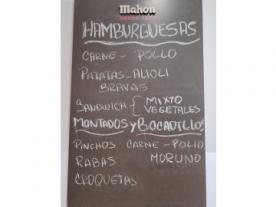 Mahou
HAMBURGUESAS
CARNE - POLLO
PATATAS - ALIOLI
BRAVAS
SANDWICH { MIXTO
VEGETALES
MONTADOS Y BOCADILLOS
PINCHOS CARNE - POLLO
RABAS MORUNO
CROQUETAS